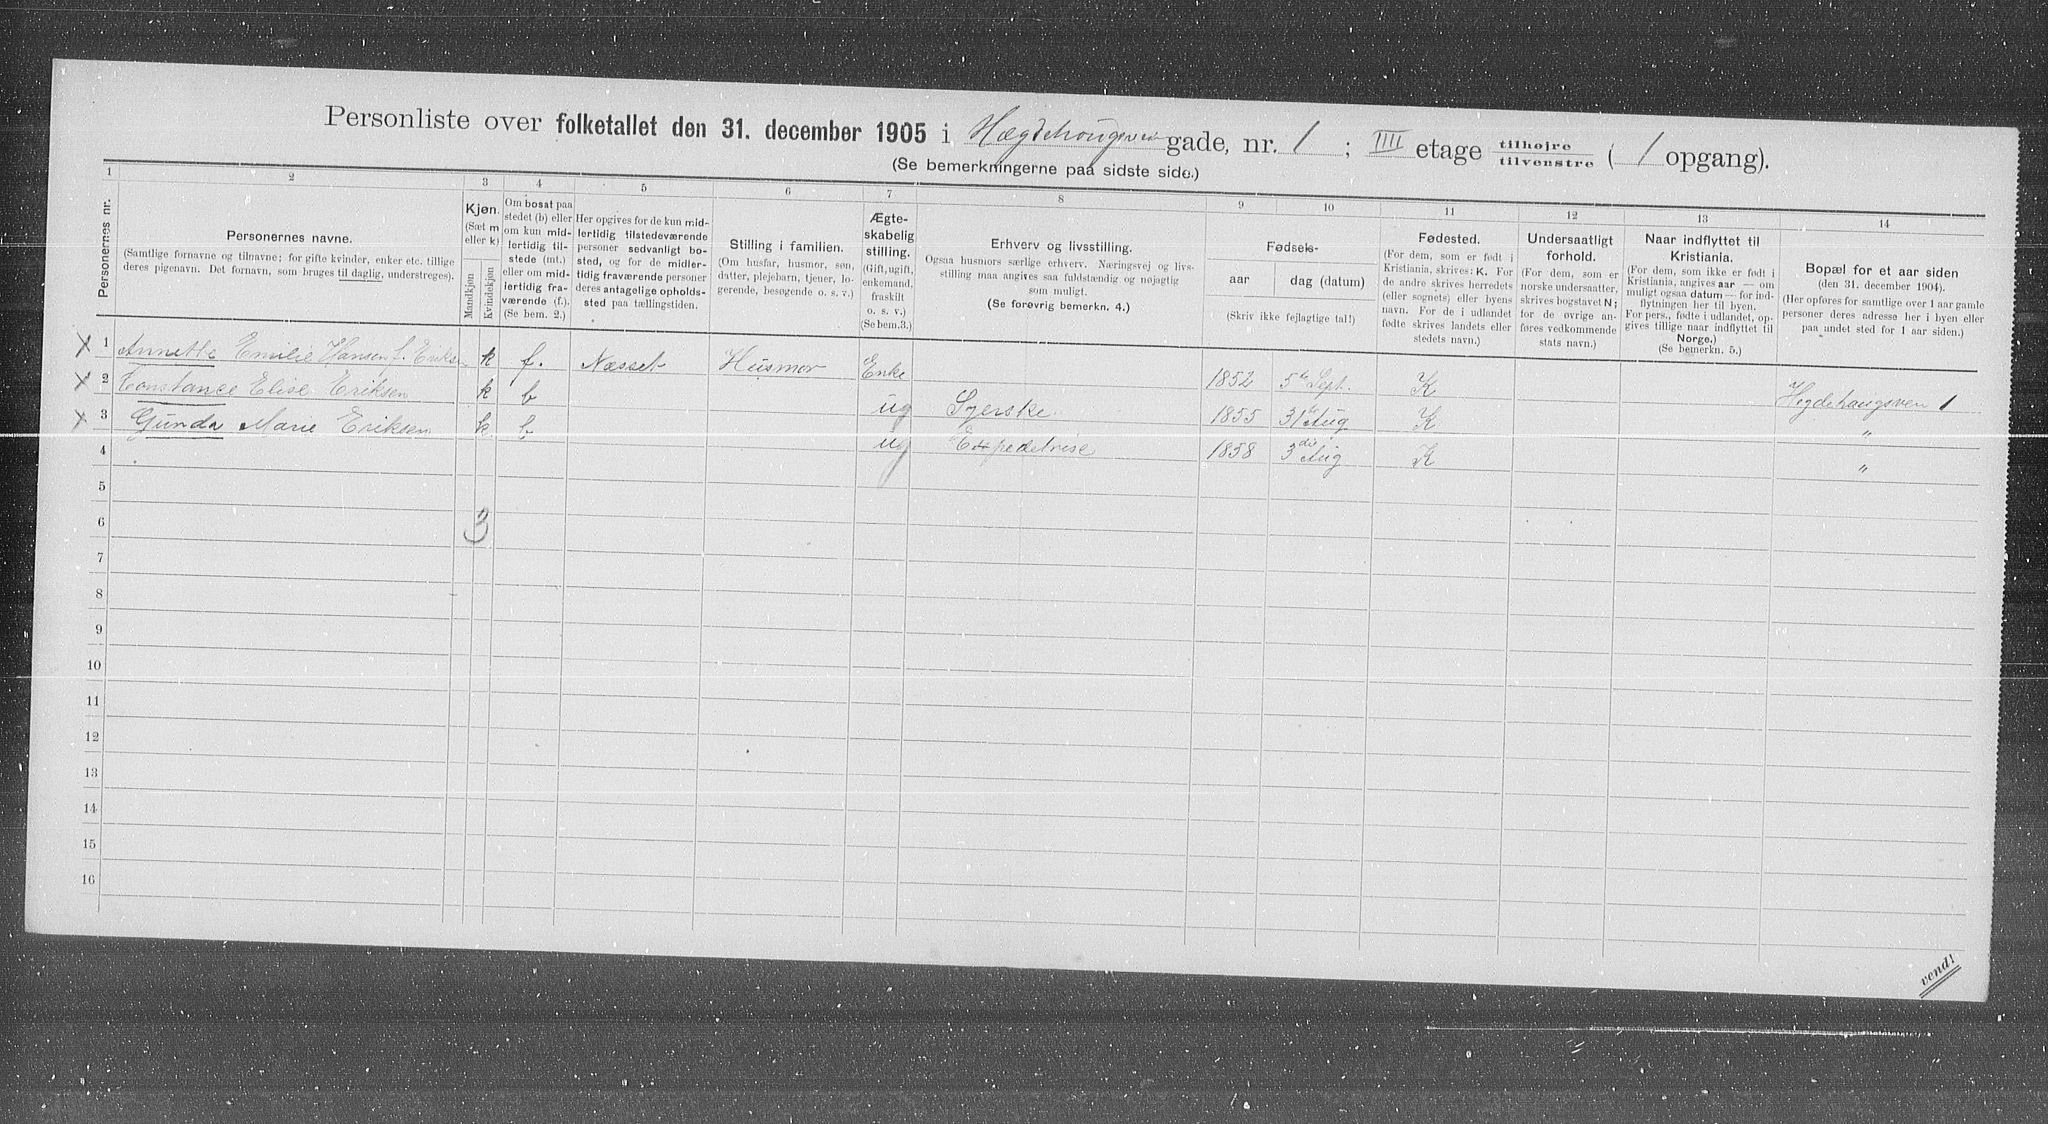 Personliste over folketallet den 31. december 1905 i Hægdehougsveien gade, nr. 1 ; IIII etage tilhøjre tilvenstre ( 1 opgang).
(Se bemerkningerne paa sidste side.)
1 2 3 4 5 6 7 8 9 10 11 12 13 14
Personernes nr.
Personernes navne.
(Samtlige fornavne og tilnavne; for gifte kvinder, enker etc. tillige
deres pigenavn. Det fornavn, som bruges til daglig, understreges).
Kjøn.
(Sæt m
eller k)
Mandkjøn
Kvindekjøn
Om bosat paa
stedet (b) eller
om kun mid-
lertidig til-
stede (mt.)
eller om mid-
lertidig fra-
værende (f.).
(Se bem. 2.)
Her opgives for de kun mid-
lertidig tilstedeværende
personer sedvanligt bo-
sted, og for de midler-
tidig fraværende personer
deres antagelige opholds-
sted paa tællingstiden.
Stilling i familien.
(Om husfar, husmor, søn,
datter, plejebarn, tjener, lo-
gerende, besøgende o. s. v.)
Ægte-
skabelig
stilling.
(Gift, ugift,
enkemand,
fraskilt
o. s. v.)
(Se bem.3.)
Erhverv og livsstilling.
Ogsaa husmors særlige erhverv. Næringsvej og livs-
stilling maa angives saa fuldstændig og nøjagtig
som muligt.
(Se forøvrig bemerkn. 4.)
Fødsels-
aar dag (datum)
(Skriv ikke fejlagtige tal!)
Fødested.
(For dem, som er født i
Kristiania, skrives: K. For
de andre skrives herredets
(eller sognets) eller byens
navn. For de i udlandet
fødte skrives landets eller
stedets navn.)
Undersaatligt
forhold.
(For dem, som er
norske undersaatter,
skrives bogstavet N;
for de øvrige an-
føres vedkommende
stats navn.)
Naar indflyttet til
Kristiania.
(For dem, som ikke er født i
Kristiania, angives aar — om
muligt ogsaa datum — for ind-
flytningen her til byen.
For pers., fødte i udlandet, op-
gives tillige naar indflyttet til
Norge.)
(Se bemerkn. 5.)
Bopæl for et aar siden
(den 31. december 1904).
(Her opføres for samtlige over 1 aar gamle
personer deres adresse her i byen eller
paa andet sted for 1 aar siden.)
1 Annette Emilie Hansen f. Eriksen k f. Næsset Husmor Enke 1852 5te Sept. K Hegdehaugsven 1
2 Constance Elise Eriksen k b ug Syerske 1855 31te Aug K "
3 Gunda Marie Eriksen k b ug Expeditrise 1858 3die Aug K "
4
5
6 3
7
8
9
10
11
12
13
14
15
16
vend!